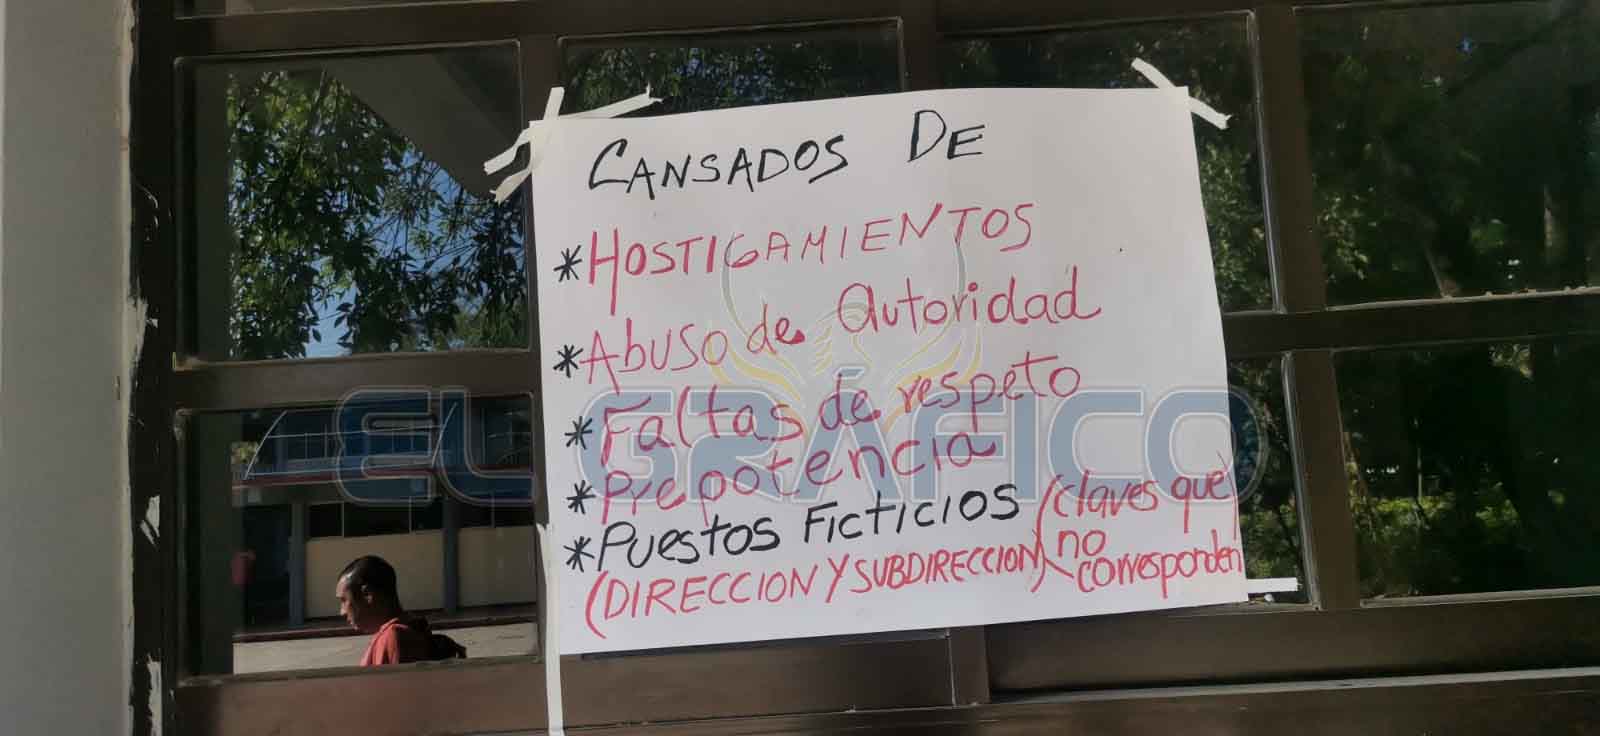 CANSADOS DE
*HOSTIGAMIENTOS
*Abuso de autoridad
*Faltas de respeto
*Prepotencia
*PUESTOS FICTICIOS (claves que)
(DIRECCION Y SUBDIRECCION) (no
corresponden
EL GRÁFICO